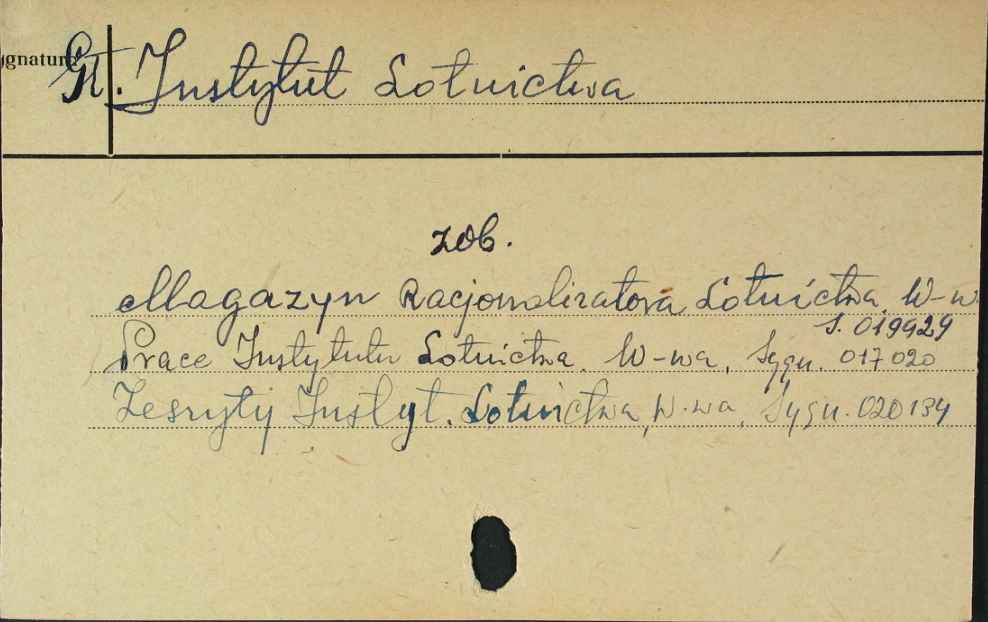 ignatura Gł. Instytut Lotnictwa
zob.
Magazyn Racjonalizatora Lotnictwa, W-w
S. 019929
Prace Instytutu Lotnictwa. W-wa, Sygn. 017020
Zeszyty Instyt. Lotnictwa, W-wa, Sygn. 020134